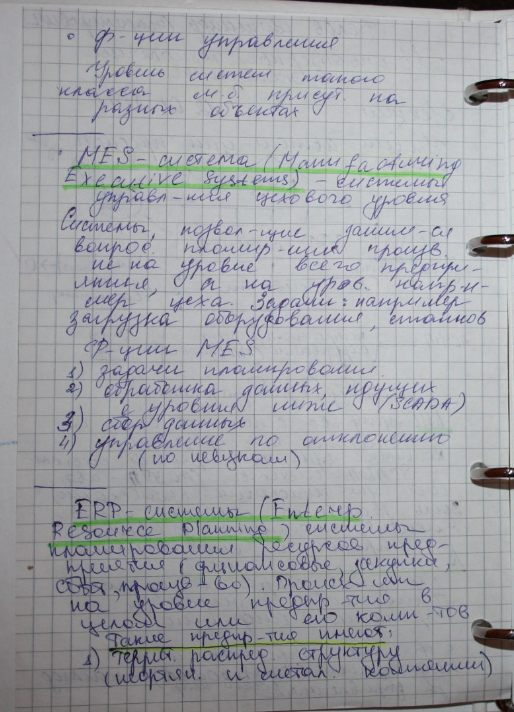 ◦ ф-ции управления
Уровень систем такого
класса м.б присут. на
разных объектах
MES-система (Manufacturing
Executive Systems) - системы
управл-ния цехового уровня
Системы, позвол-щие заним-ся
вопрос. планир-ции произв.
не на уровне всего предпри-
ятия, а на уров. напр-и-
мер, цеха. Задачи: например
загрузка оборудования, станков
Ф-ции MES
1) задачи планирования
2) обработка данных, идущих
с уровня ниже (SCADA)
3) сбор данных
4) управление по отклонению
(по невязкам)
ERP-системы (Enterp.
Resource Planning) системы
планирования ресурсов пред-
приятия (финансовые, закупка,
сбыт, произв-во).
на уровне предпр-тия в
целом или его комп-тов
Такие предпр-тия имеют:
1) террит. распред структуру
(нефтян. и метал. компании)